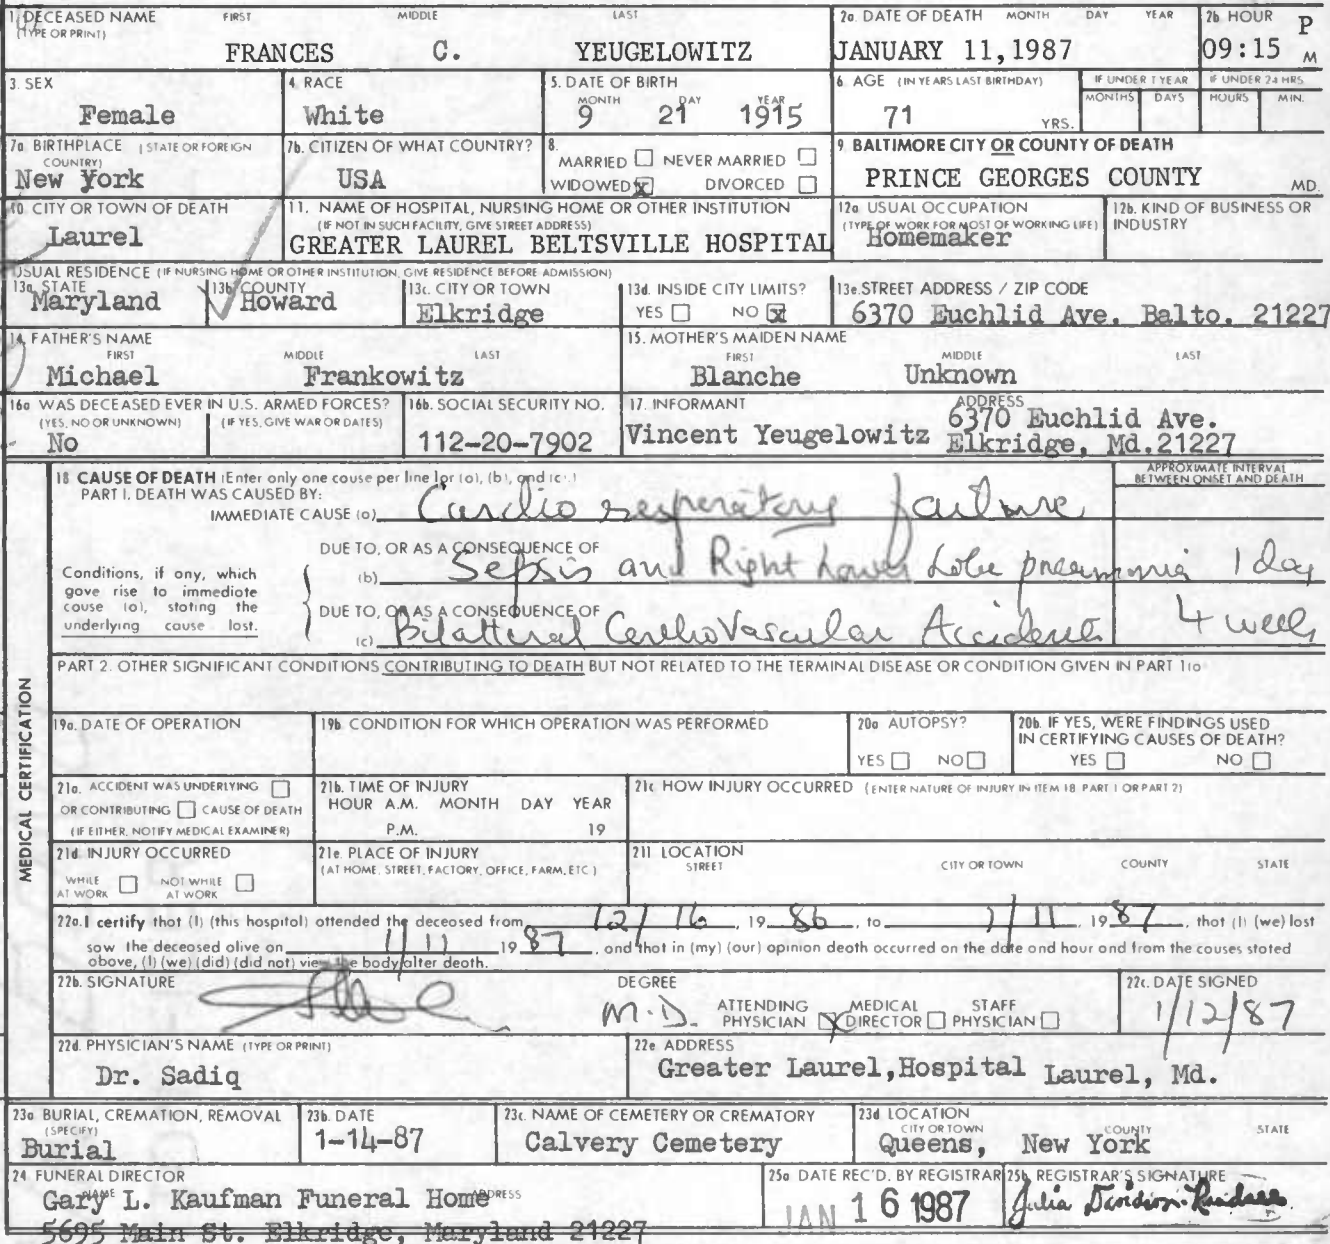 1. DECEASED NAME (TYPE OR PRINT) FIRST MIDDLE LAST
FRANCES C. YEUGELOWITZ
2a. DATE OF DEATH MONTH DAY YEAR
JANUARY 11,1987
2b HOUR
09:15 P M
3. SEX
Female
4. RACE
White
5. DATE OF BIRTH
MONTH DAY YEAR
9 21 1915
6. AGE (IN YEARS LAST BIRTHDAY)
71 YRS.
IF UNDER 1 YEAR
MONTHS DAYS
IF UNDER 24 HRS.
HOURS MIN.
7a. BIRTHPLACE (STATE OR FOREIGN COUNTRY)
New York
7b. CITIZEN OF WHAT COUNTRY?
USA
8.
MARRIED NEVER MARRIED
WIDOWED X DIVORCED
9. BALTIMORE CITY OR COUNTY OF DEATH
PRINCE GEORGES COUNTY MD.
10. CITY OR TOWN OF DEATH
Laurel
11. NAME OF HOSPITAL, NURSING HOME OR OTHER INSTITUTION
(IF NOT IN SUCH FACILITY, GIVE STREET ADDRESS)
GREATER LAUREL BELTSVILLE HOSPITAL
12a USUAL OCCUPATION
(TYPE OF WORK FOR MOST OF WORKING LIFE)
Homemaker
12b. KIND OF BUSINESS OR INDUSTRY
USUAL RESIDENCE (IF NURSING HOME OR OTHER INSTITUTION, GIVE RESIDENCE BEFORE ADMISSION)
13a. STATE
Maryland
13b. COUNTY
Howard
13c. CITY OR TOWN
Elkridge
13d. INSIDE CITY LIMITS?
YES NO X
13e. STREET ADDRESS / ZIP CODE
6370 Euchlid Ave. Balto. 21227
14. FATHER'S NAME
FIRST MIDDLE LAST
Michael Frankowitz
15. MOTHER'S MAIDEN NAME
FIRST MIDDLE LAST
Blanche Unknown
16a WAS DECEASED EVER IN U.S. ARMED FORCES?
(YES, NO OR UNKNOWN) (IF YES, GIVE WAR OR DATES)
No
16b. SOCIAL SECURITY NO.
112-20-7902
17. INFORMANT ADDRESS
Vincent Yeugelowitz 6370 Euchlid Ave.
Elkridge, Md.21227
MEDICAL CERTIFICATION
18 CAUSE OF DEATH (Enter only one cause per line for (a), (b), and (c).)
PART I. DEATH WAS CAUSED BY:
APPROXIMATE INTERVAL
BETWEEN ONSET AND DEATH
IMMEDIATE CAUSE (a) Cardio resperatory failure
Conditions, if any, which
gave rise to immediate
cause (a), stating the
underlying cause last.
DUE TO, OR AS A CONSEQUENCE OF
(b) Sepsis and Right Lower Lobe pneumonia 1 day
DUE TO, OR AS A CONSEQUENCE OF
(c) Bilatteral CerebroVascular Accidents 4 weeks
PART 2. OTHER SIGNIFICANT CONDITIONS CONTRIBUTING TO DEATH BUT NOT RELATED TO THE TERMINAL DISEASE OR CONDITION GIVEN IN PART 1(a)
19a. DATE OF OPERATION
19b. CONDITION FOR WHICH OPERATION WAS PERFORMED
20a AUTOPSY?
YES NO
20b. IF YES, WERE FINDINGS USED
IN CERTIFYING CAUSES OF DEATH?
YES NO
21a. ACCIDENT WAS UNDERLYING
OR CONTRIBUTING CAUSE OF DEATH
(IF EITHER, NOTIFY MEDICAL EXAMINER)
21b. TIME OF INJURY
HOUR A.M. MONTH DAY YEAR
P.M. 19
21c HOW INJURY OCCURRED (ENTER NATURE OF INJURY IN ITEM 18 PART 1 OR PART 2)
21d. INJURY OCCURRED
WHILE AT WORK NOT WHILE AT WORK
21e. PLACE OF INJURY
(AT HOME, STREET, FACTORY, OFFICE, FARM, ETC.)
21f LOCATION
STREET CITY OR TOWN COUNTY STATE
22a. I certify that (I) (this hospital) attended the deceased from 12/16, 19 86, to 1/11, 19 87, that (I) (we) last
saw the deceased alive on 1/11 19 87, and that in (my) (our) opinion death occurred on the date and hour and from the causes stated
above, (I) (we) (did) (did not) view the body after death.
22b. SIGNATURE
DEGREE
M.D.
ATTENDING PHYSICIAN X MEDICAL DIRECTOR STAFF PHYSICIAN
22c. DATE SIGNED
1/12/87
22d. PHYSICIAN'S NAME (TYPE OR PRINT)
Dr. Sadiq
22e ADDRESS
Greater Laurel,Hospital Laurel, Md.
23a BURIAL, CREMATION, REMOVAL
(SPECIFY)
Burial
23b. DATE
1-14-87
23c. NAME OF CEMETERY OR CREMATORY
Calvery Cemetery
23d LOCATION
CITY OR TOWN COUNTY STATE
Queens, New York
24 FUNERAL DIRECTOR
NAME ADDRESS
Gary L. Kaufman Funeral Home
5695 Main St. Elkridge, Maryland 21227
25a DATE REC'D. BY REGISTRAR
JAN 16 1987
25b. REGISTRAR'S SIGNATURE
Julia Davidson-Randall